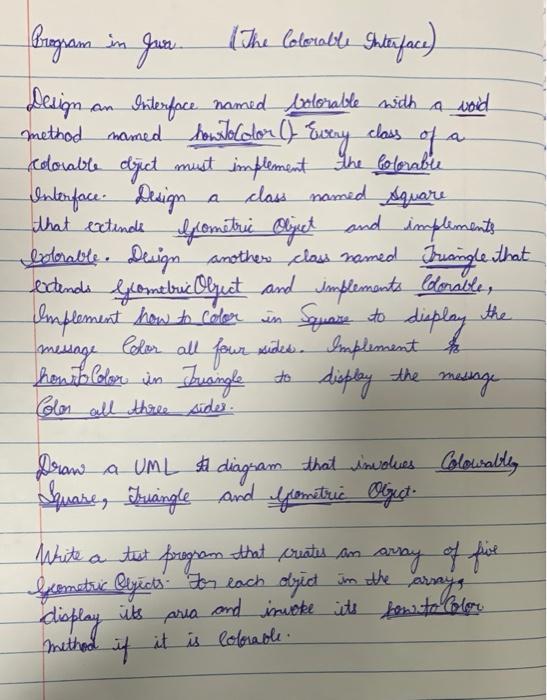 Program in Java. (The Colorable Interface)
Design an Interface named Colorable with a void
method named howToColor(). Every class of a
colorable object must implement the Colorable
Interface. Design a class named Square
that extends Geometric Object and implements
Colorable. Design another class named Triangle that
extends GeometricObject and implements Colorable,
Implement how to Color in Square to display the
message Color all four sides. Implement
howtoColor in Triangle to display the message
Color all three sides.
Draw a UML diagram that involves Colourable,
Square, Triangle and Geometric Object.
Write a test program that creates an array of five
Geometric Objects. For each object in the array,
display its area and invoke its how to Color
method if it is Colorable.